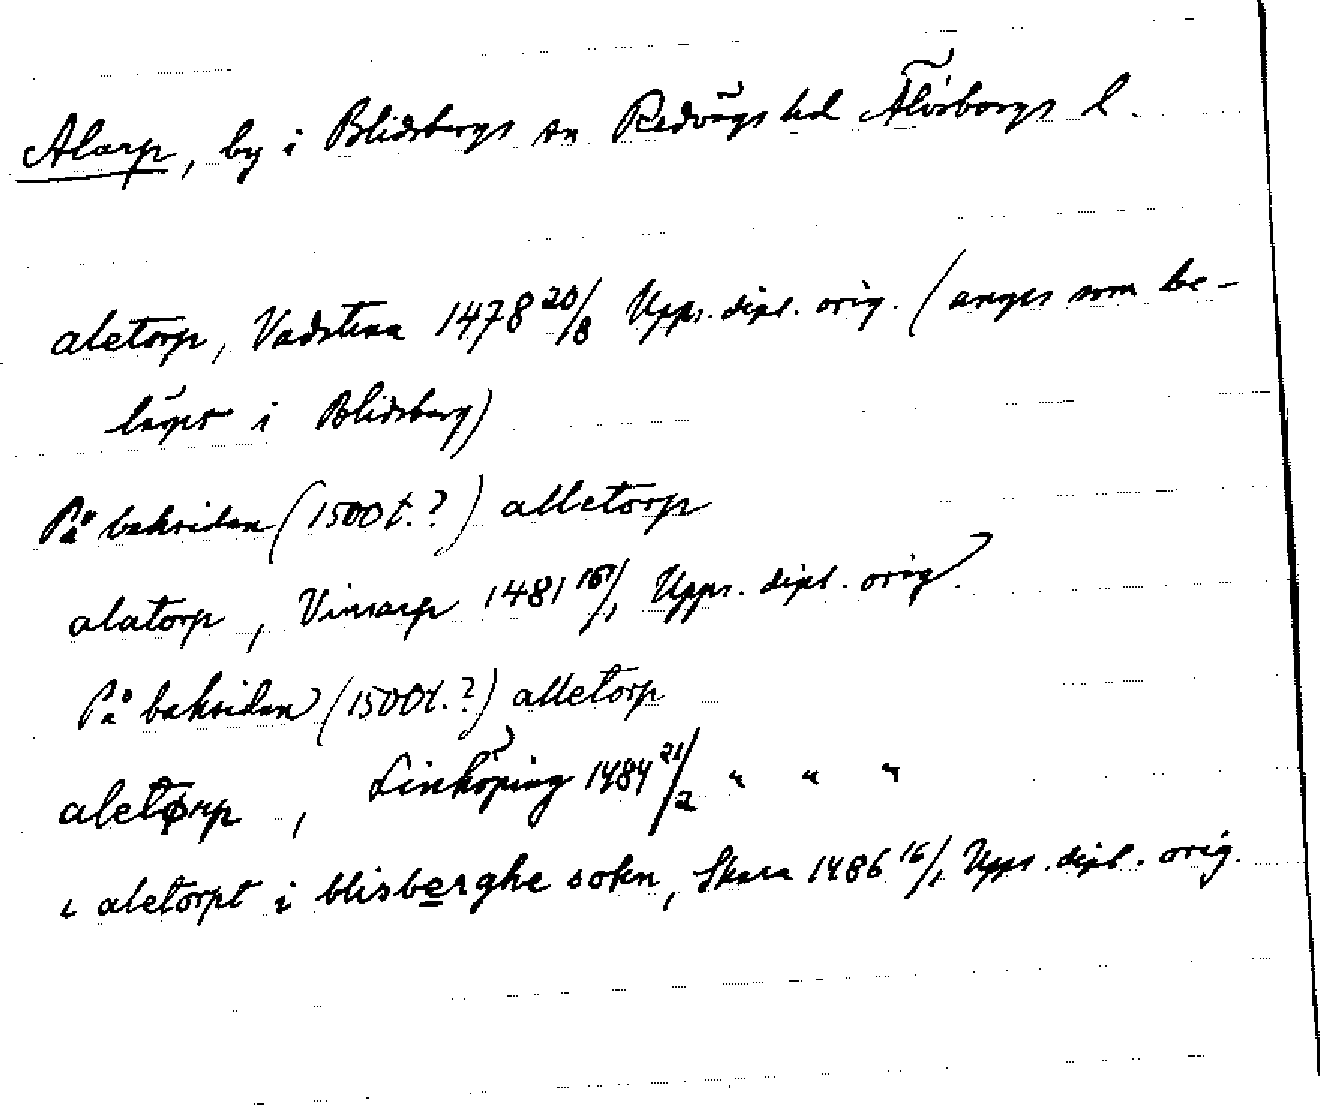 Alarp, by i Blidsbergs sn Redvägs hd Älvsborgs l.
aletorp, Vadstena 1478 20/8 Upps. dipl. orig. (anges som be-
läget i Blidsberg)
På baksidan (1500 t.?) alletorp
alatorp, Vinsarp 1481 16/1 Upps. dipl. orig.
På baksidan (1500 t.?) alletorp
aletørp, Linköping 1484 21/2 " " "
i aletorpt i blisberghe sokn, Skara 1486 16/1 Upps. dipl. orig.